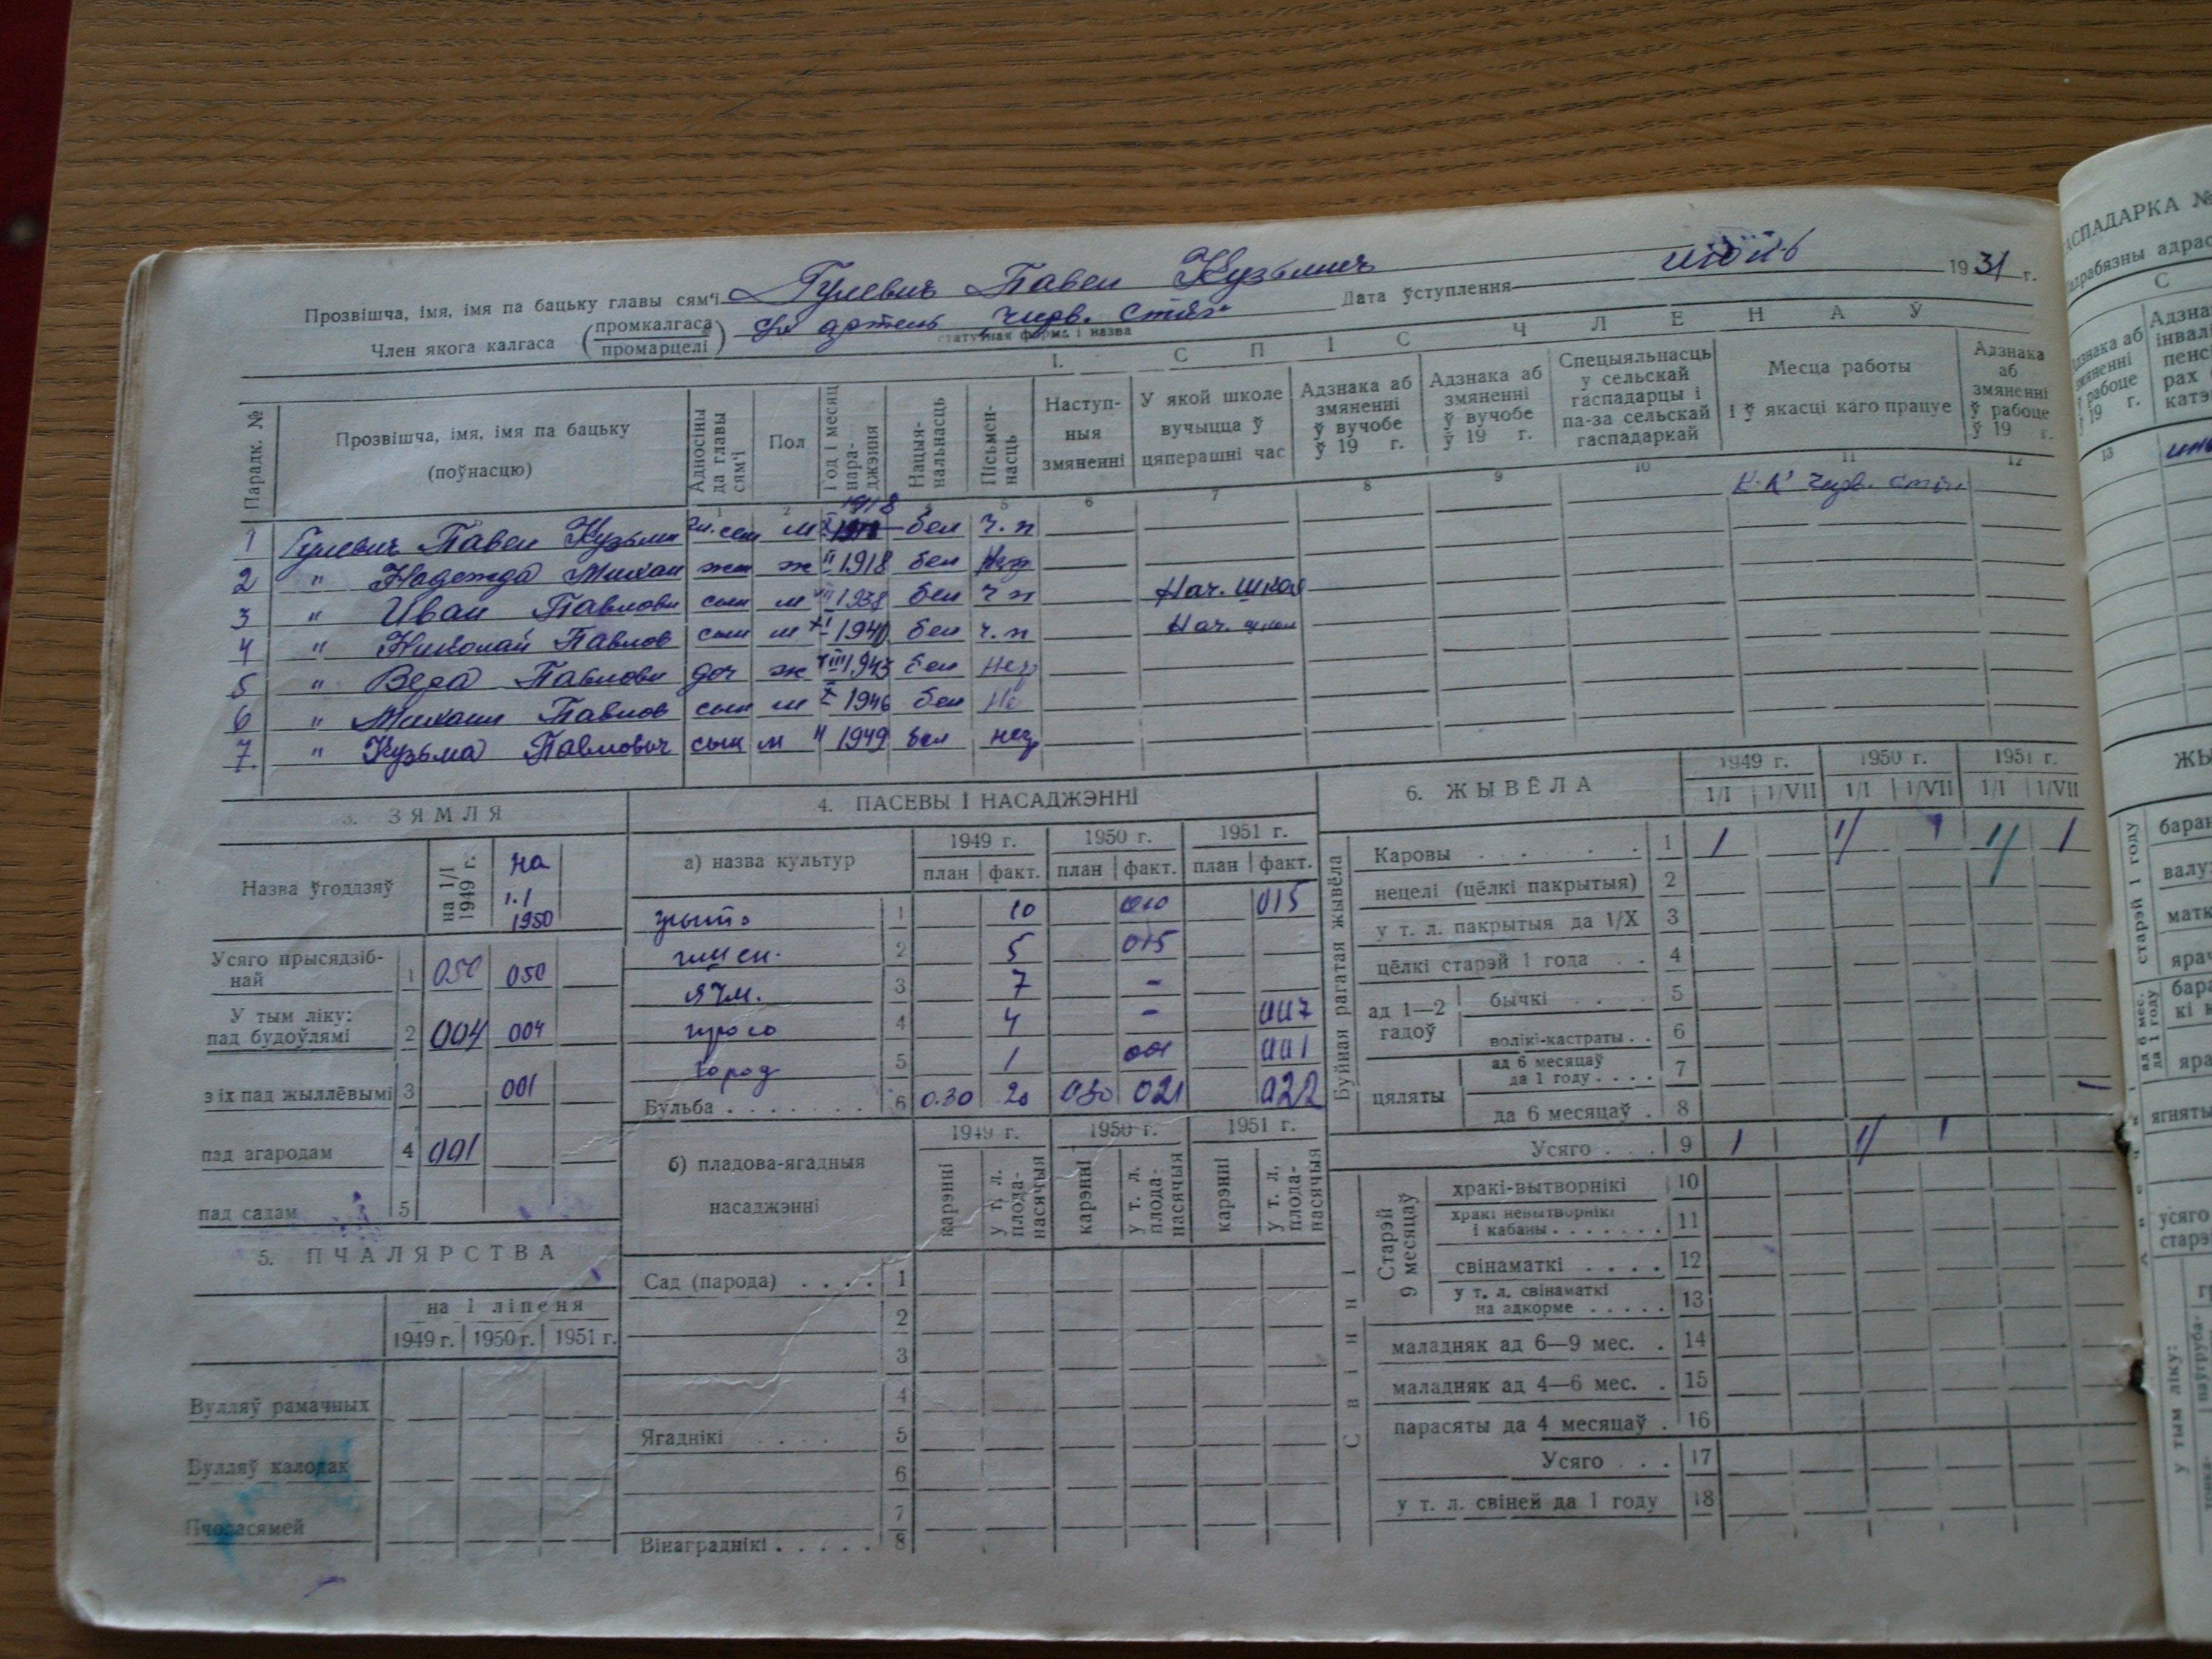 Прозвішча, імя, імя па бацьку главы сям'і Гулевич Павел Кузьмич Дата ўступлення июль 1931 г.
Член якога калгаса (промкалгаса промарцелі) с/х артель Черв. Стяг
статутная форма і назва
1. СПІС ЧЛЕНАЎ
Парадк. № Прозвішча, імя, імя па бацьку (поўнасцю) Адносіны да главы сям'і Пол Год і месяц нараджэння Нацыянальнасць Пісьменнасць Наступныя змяненні У якой школе вучыцца ў цяперашні час Адзнака аб змяненні ў вучобе ў 19 г. Адзнака аб змяненні ў вучобе ў 19 г. Спецыяльнасць у сельскай гаспадарцы і па-за сельскай гаспадаркай Месца работы і ў якасці каго працуе Адзнака аб змяненні ў рабоце ў 19 г.
1 2 5 6 7 8 9 10 11 12
1 Гулевич Павел Кузьми гл. сем м 1918 бел ч.п К-к' Черв. Стяг
2 " Надежда Михаи жен ж II 1918 бел Нег
3 " Иван Павлови сын м VII 1938 бел ч п Нач. школ
4 " Николай Павлов сын м XI 1940 бел ч.п Нач. школ
5 " Вера Павловн доч ж VIII 1943 бел Нег
6 " Михаил Павлов сын м X 1946 бел Не
7. " Кузьма Павлович сын м II 1949 бел нег
3. ЗЯМЛЯ
Назва ўгоддзяў на 1/I 1949 г. на 1.1 1950
Усяго прысядзібнай 1 050 050
У тым ліку: пад будоўлямі 2 004 004
з іх пад жыллёвымі 3 001
пад агародам 4 001
пад садам 5
5. ПЧАЛЯРСТВА
на 1 ліпеня
1949 г. 1950 г. 1951 г.
Вулляў рамачных
Вулляў калодак
Пчоласямей
4. ПАСЕВЫ І НАСАДЖЭННІ
а) назва культур 1949 г. 1950 г. 1951 г.
план факт. план факт. план факт.
жыто 1 10 010 015
пшен. 2 5 015
ячм. 3 7 -
просо 4 4 - 007
город 5 1 001 001
Бульба 6 0.30 20 030 021 022
б) пладова-ягадныя насаджэнні 1949 г. 1950 г. 1951 г.
карэнні у т. л. плоданасячыя карэнні у т. л. плоданасячыя карэнні у т. л. плоданасячыя
Сад (парода) 1
2
3
4
Ягаднікі 5
6
7
Вінаграднікі 8
6. ЖЫВЁЛА 1949 г. 1950 г. 1951 г.
1/I 1/VII 1/I 1/VII 1/I 1/VII
Буйная рагатая жывёла
Каровы 1 1 1 1 1 1
нецелі (цёлкі пакрытыя) 2
у т. л. пакрытыя да 1/X 3
цёлкі старэй 1 года 4
ад 1—2 гадоў бычкі 5
волікі-кастраты 6
цяляты ад 6 месяцаў да 1 году 7
да 6 месяцаў 8
Усяго 9 1 1 1
Свінні
Старэй 9 месяцаў хракі-вытворнікі 10
хракі невытворнікі і кабаны 11
свінаматкі 12
у т. л. свінаматкі на адкорме 13
маладняк ад 6—9 мес. 14
маладняк ад 4—6 мес. 15
парасяты да 4 месяцаў 16
Усяго 17
у т. л. свіней да 1 году 18
13
старэй 1 году
ад 6 мес. да 1 году
ягняты
усяго
у тым ліку: